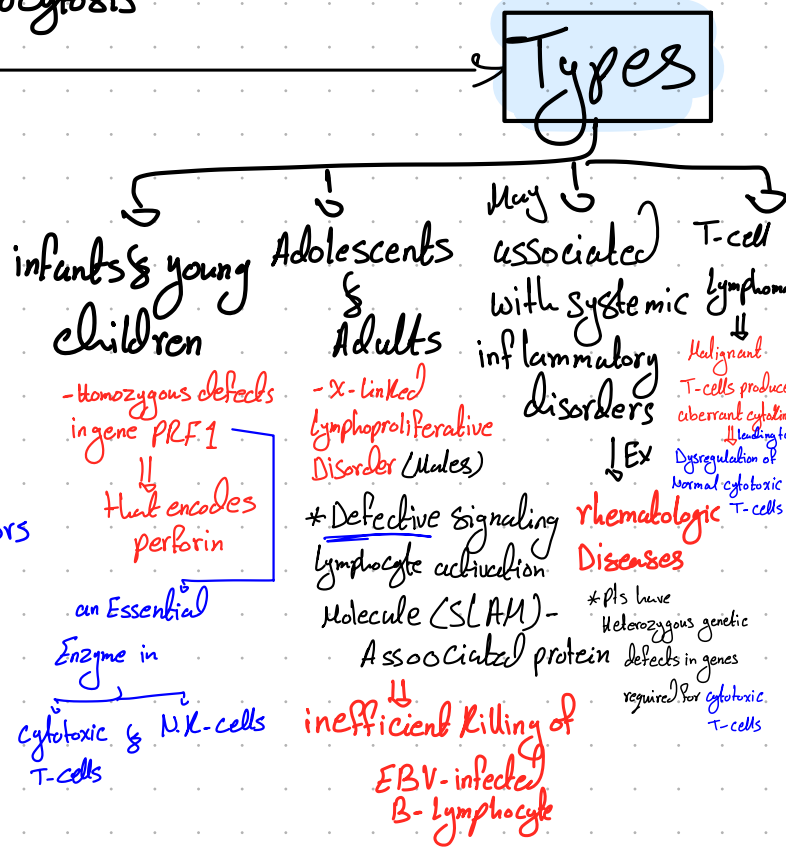 ocytosis
Types
infants & young
children
- Homozygous defects
in gene PRF1
that encodes
perforin
ors
an Essential
Enzyme in
cytotoxic & N.K-cells
T-cells
Adolescents
&
Adults
- X-Linked
lymphoproliferative
Disorder (Males)
* Defective signaling
lymphocyte activation
Molecule (SLAM)-
Associated protein
inefficient killing of
EBV-infected
B-Lymphocyte
May
associated
with systemic
inflammatory
disorders
Ex
rhematologic
Diseases
* pts have
Heterozygous genetic
defects in genes
required for cytotoxic
T-cells
T-cell
Lymphom
Malignant
T-cells produce
aberrant cytokin
leading to
Dysregulation of
Normal cytotoxic
T-cells